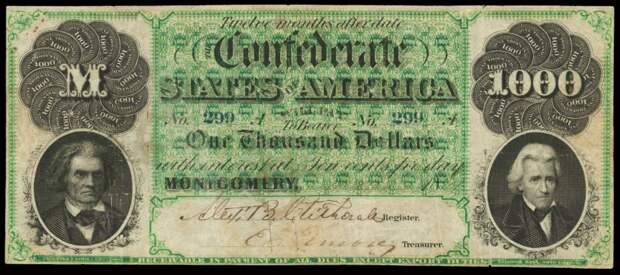 Twelve months after date
THE
Confederate
M
STATES OF AMERICA
1000
WILL PAY
No. 299 A
No. 299 A
To Bearer
One Thousand Dollars
with interest at Ten cents per day
MONTGOMERY,
Alex. B. Clitherall Register.
E. C. Elmore Treasurer.
RECEIVABLE IN PAYMENT OF ALL DUES EXCEPT EXPORT DUTIES